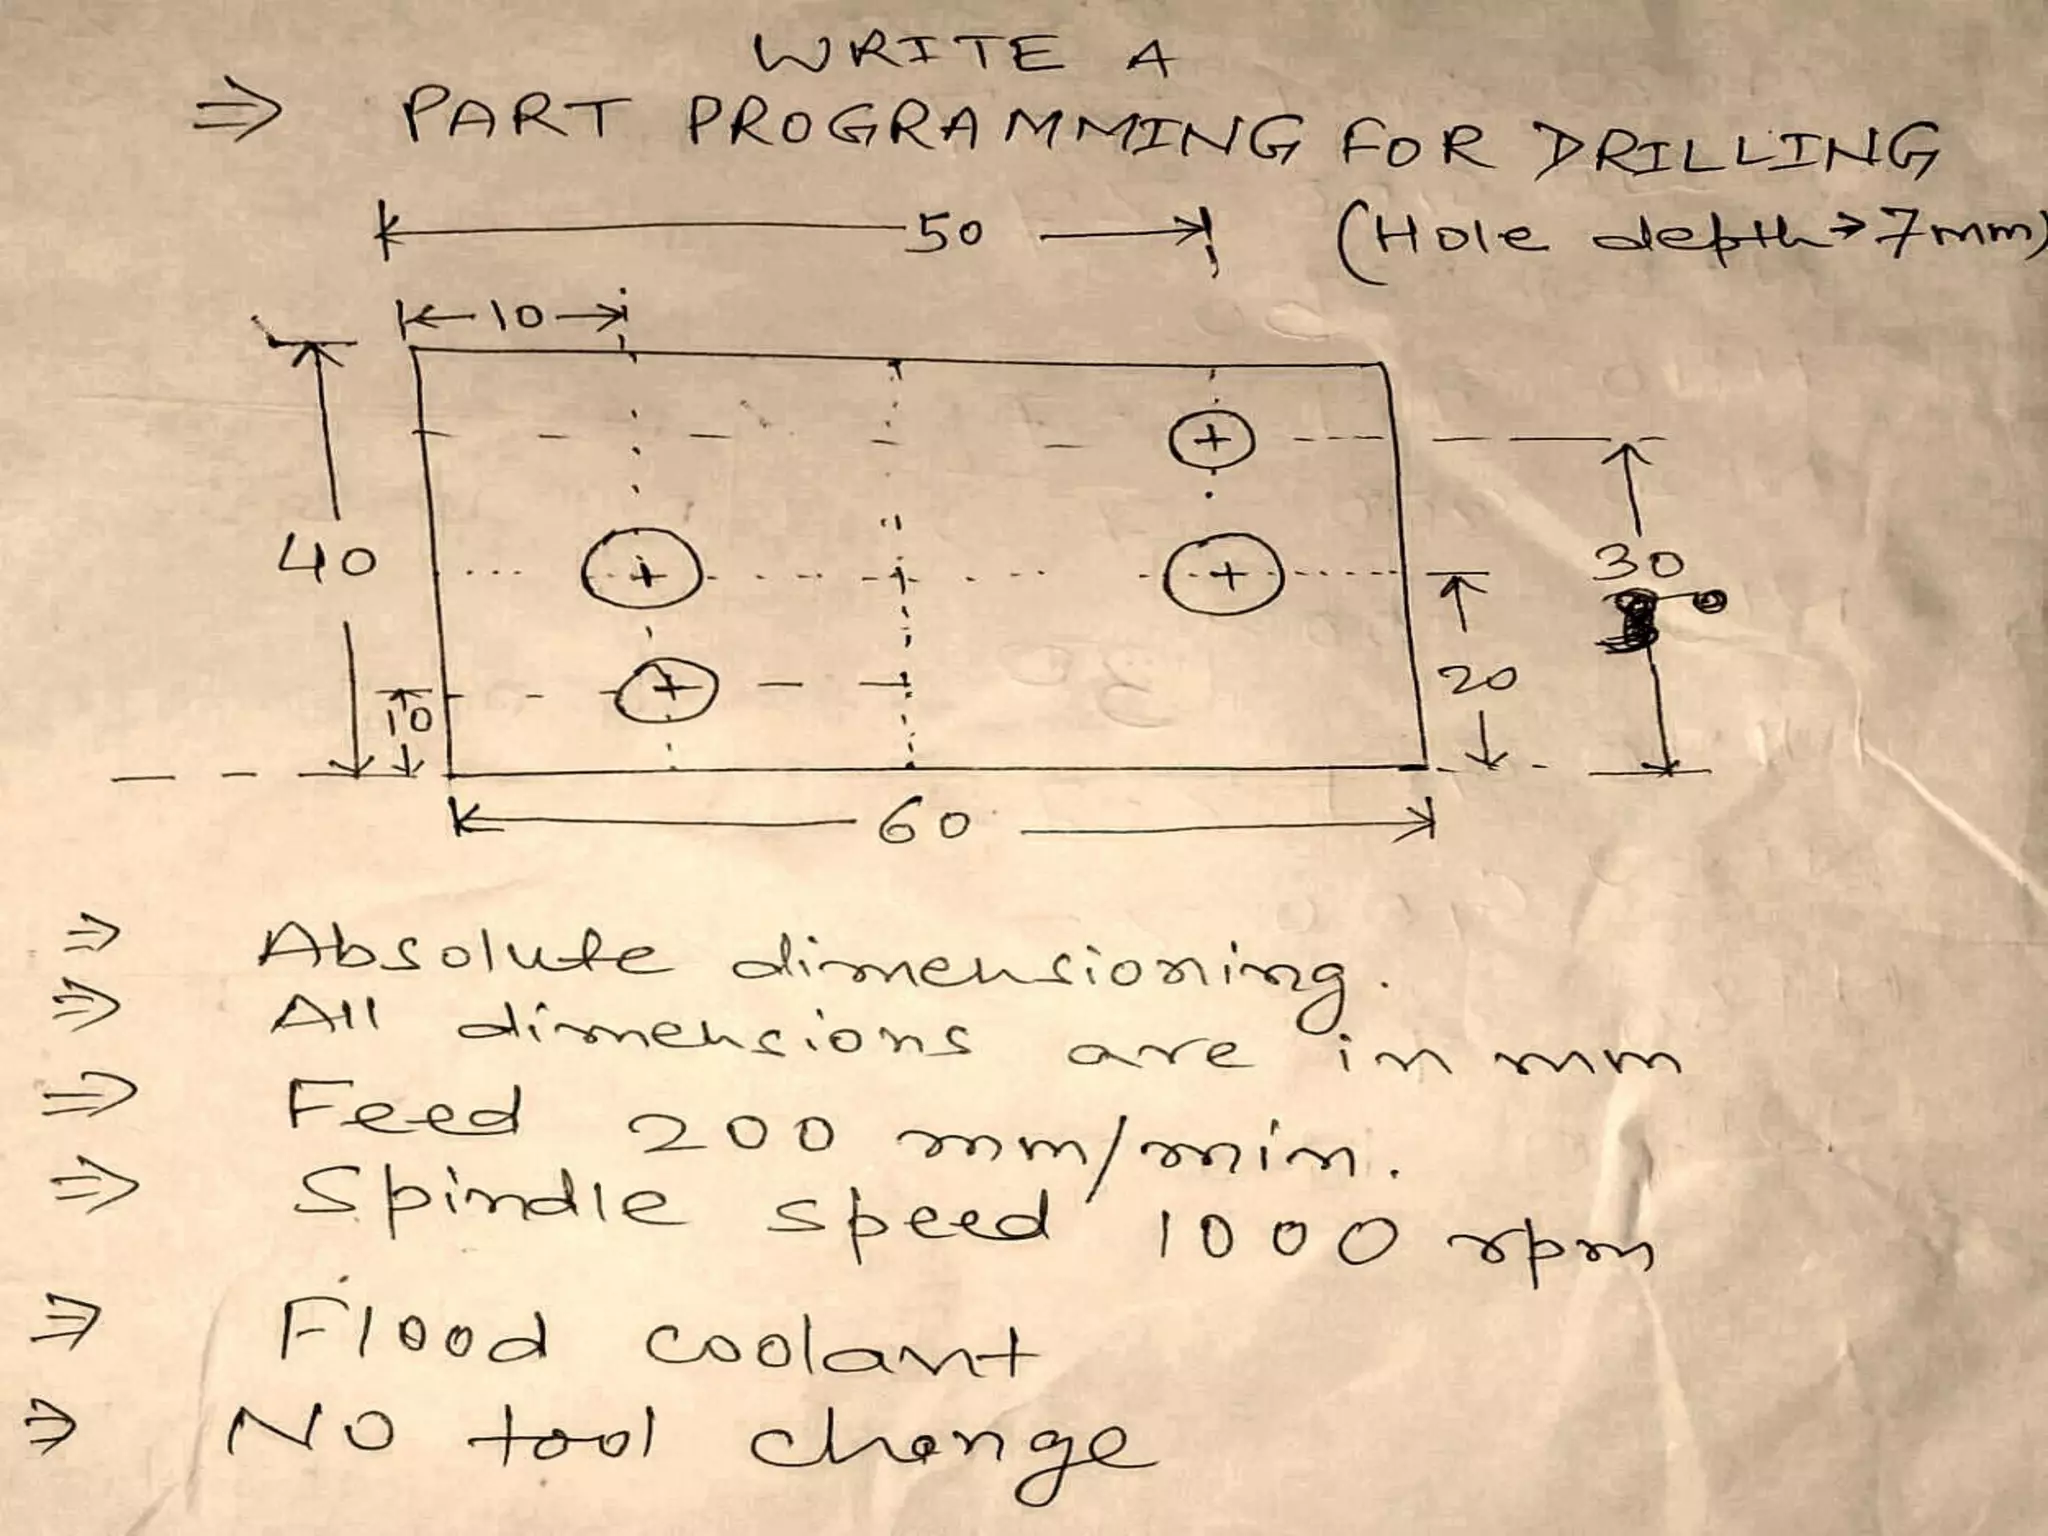 WRITE A
⇒ PART PROGRAMMING FOR DRILLING
50 (Hole depth → 7mm)
10
40
30
20
10
60
⇒ Absolute dimensioning.
⇒ All dimensions are in mm
⇒ Feed 200 mm/min.
⇒ Spindle speed 1000 rpm
⇒ Flood coolant
⇒ No tool change